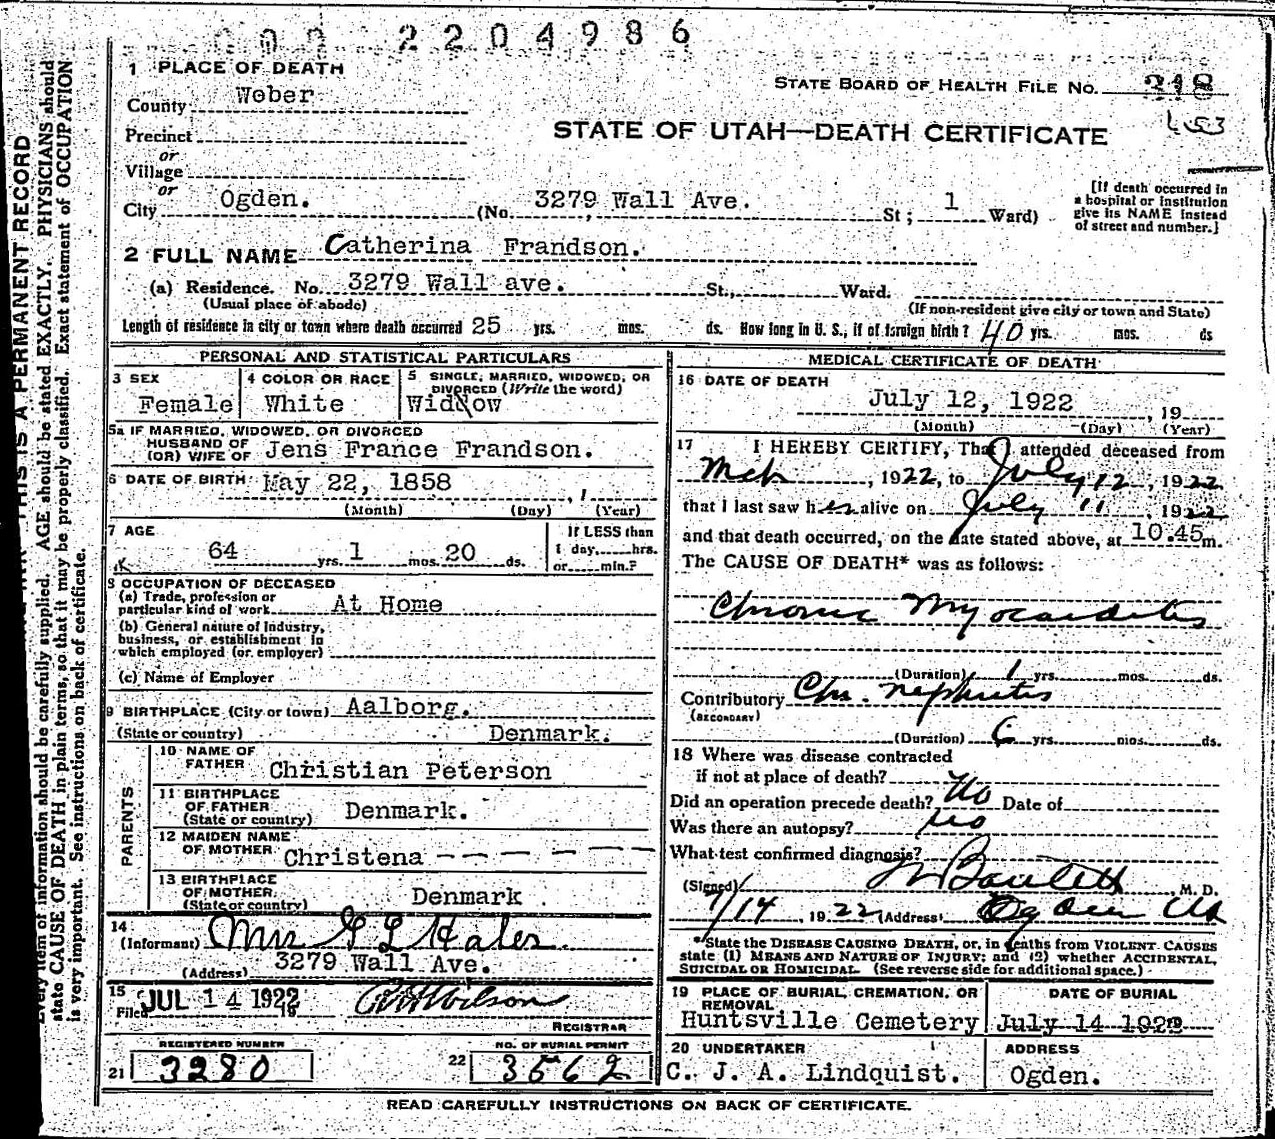 2204986
1 PLACE OF DEATH
STATE BOARD OF HEALTH FILE NO. 318
County Weber
Precinct
STATE OF UTAH—DEATH CERTIFICATE
or
Village
or
City Ogden. (No. 3279 Wall Ave. St; 1 Ward)
[If death occurred in
a hospital or institution
give its NAME instead
of street and number.]
2 FULL NAME Catherina Frandson.
(a) Residence. No. 3279 Wall ave. St., Ward.
(Usual place of abode) (If non-resident give city or town and State)
Length of residence in city or town where death occurred 25 yrs. mos. ds. How long in U. S., if of foreign birth? 40 yrs. mos. ds
PERSONAL AND STATISTICAL PARTICULARS
3 SEX
Female
4 COLOR OR RACE
White
5 SINGLE, MARRIED, WIDOWED, OR
DIVORCED (Write the word)
Widow
5a IF MARRIED, WIDOWED, OR DIVORCED
HUSBAND OF
(OR) WIFE OF Jens France Frandson.
6 DATE OF BIRTH May 22, 1858
(Month) (Day) (Year)
7 AGE
64 yrs. 1 mos. 20 ds.
If LESS than
1 day, hrs.
or min.?
8 OCCUPATION OF DECEASED
(a) Trade, profession or
particular kind of work At Home
(b) General nature of Industry,
business, or establishment in
which employed (or employer)
(c) Name of Employer
9 BIRTHPLACE (City or town) Aalborg.
(State or country) Denmark.
PARENTS
10 NAME OF
FATHER Christian Peterson
11 BIRTHPLACE
OF FATHER
(State or country) Denmark.
12 MAIDEN NAME
OF MOTHER Christena — — — — — —
13 BIRTHPLACE
OF MOTHER
(State or country) Denmark
14
(Informant) Mrs G L Hales.
(Address) 3279 Wall Ave.
15
Filed JUL 14 1922 19
Wilson
REGISTRAR
REGISTERED NUMBER
21 3280
NO. OF BURIAL PERMIT
22 3562
MEDICAL CERTIFICATE OF DEATH
16 DATE OF DEATH
July 12, 1922, 19
(Month) (Day) (Year)
17 I HEREBY CERTIFY, That I attended deceased from
Mch, 1922, to July 12, 1922.
that I last saw her alive on July 11, 1922
and that death occurred, on the date stated above, at 10.45 m.
The CAUSE OF DEATH* was as follows:
Chronic Myocarditis
(Duration) 1 yrs. mos. ds.
Contributory Chr. nephritis
(SECONDARY)
(Duration) 6 yrs. mos. ds.
18 Where was disease contracted
if not at place of death? No
Did an operation precede death? Date of
Was there an autopsy? no
What test confirmed diagnosis?
(Signed) Bartlett, M. D.
7/14, 1922 (Address) Ogden Ut
*State the DISEASE CAUSING DEATH, or, in deaths from VIOLENT CAUSES
state (1) MEANS AND NATURE OF INJURY; and (2) whether ACCIDENTAL,
SUICIDAL OR HOMICIDAL. (See reverse side for additional space.)
19 PLACE OF BURIAL, CREMATION, OR
REMOVAL
Huntsville Cemetery
DATE OF BURIAL
July 14 1922
20 UNDERTAKER
C. J. A. Lindquist.
ADDRESS
Ogden.
READ CAREFULLY INSTRUCTIONS ON BACK OF CERTIFICATE.
THIS IS A PERMANENT RECORD
Every item of information should be carefully supplied. AGE should be stated EXACTLY. PHYSICIANS should
state CAUSE OF DEATH in plain terms, so that it may be properly classified. Exact statement of OCCUPATION
is very important. See instructions on back of certificate.